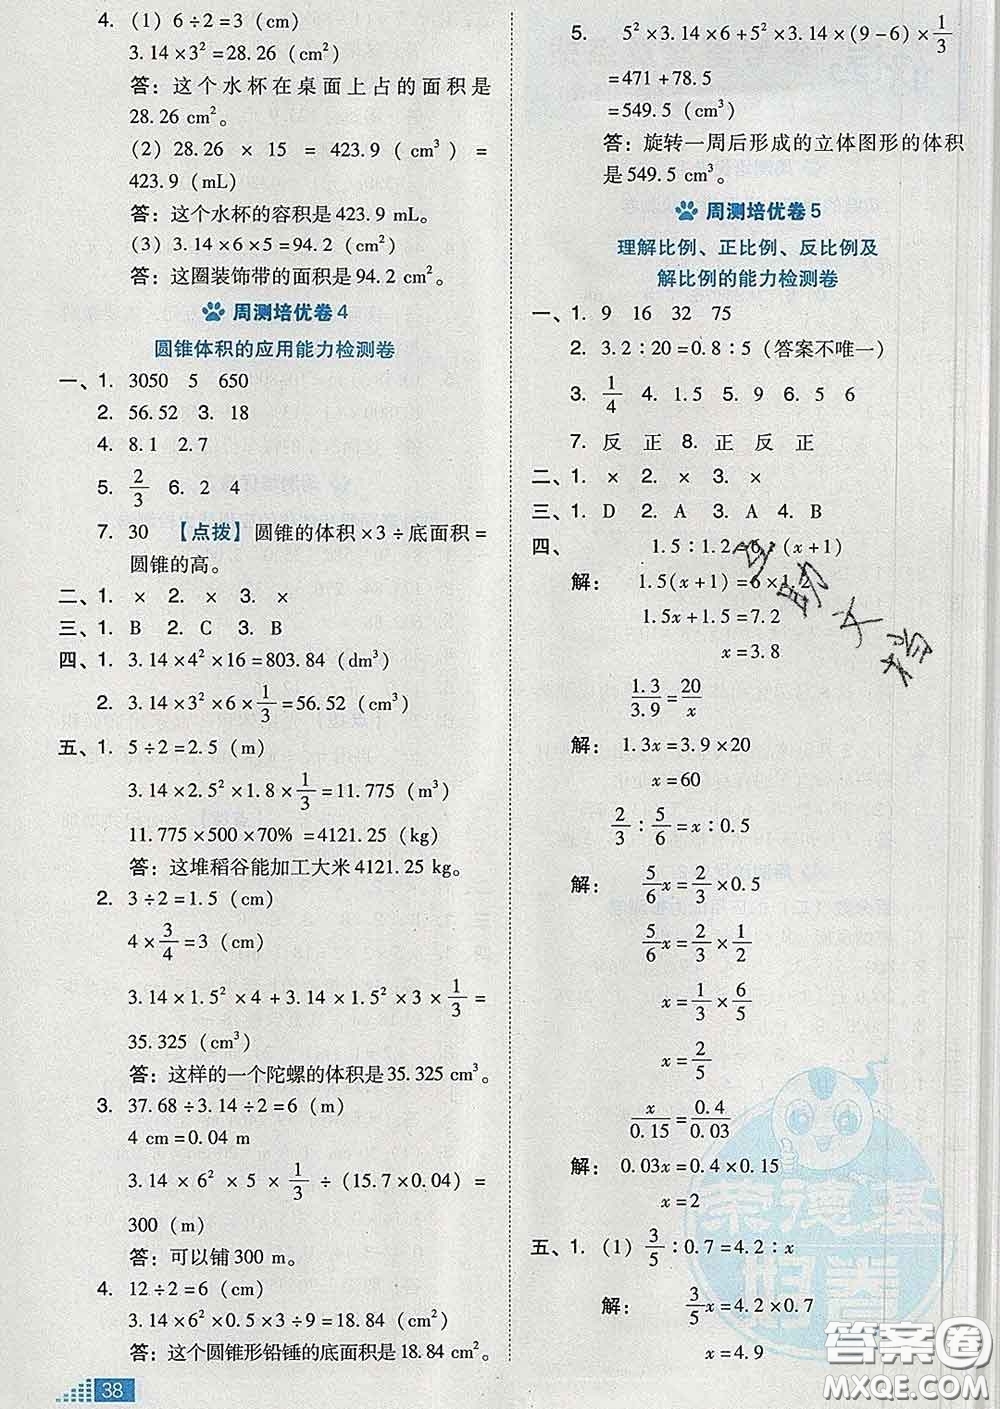 4. (1) 6÷2=3 (cm)
3.14×3²=28.26 (cm²)
答：这个水杯在桌面上占的面积是
28.26 cm²。
(2) 28.26 × 15 = 423.9 (cm³) =
423.9 (mL)
答：这个水杯的容积是423.9 mL。
(3) 3.14×6×5=94.2 (cm²)
答：这圈装饰带的面积是94.2 cm²。
周测培优卷4
圆锥体积的应用能力检测卷
一、1. 3050 5 650
2. 56.52 3. 18
4. 8.1 2.7
5. 2/3 6. 2 4
7. 30 【点拨】圆锥的体积×3÷底面积=
圆锥的高。
二、1. × 2. × 3. ×
三、1. B 2. C 3. B
四、1. 3.14×4²×16=803.84 (dm³)
2. 3.14×3²×6×1/3=56.52 (cm³)
五、1. 5÷2=2.5 (m)
3.14×2.5²×1.8×1/3=11.775 (m³)
11.775×500×70%=4121.25 (kg)
答：这堆稻谷能加工大米4121.25 kg。
2. 3÷2=1.5 (cm)
4×3/4=3 (cm)
3.14×1.5²×4+3.14×1.5²×3×1/3=
35.325 (cm³)
答：这样的一个陀螺的体积是35.325 cm³。
3. 37.68÷3.14÷2=6 (m)
4 cm=0.04 m
3.14×6²×5×1/3÷(15.7×0.04)=
300 (m)
答：可以铺300 m。
4. 12÷2=6 (cm)
3.14×6²×0.5×3÷9=18.84 (cm²)
答：这个圆锥形铅锤的底面积是18.84 cm²。
38
5. 5²×3.14×6+5²×3.14×(9-6)×1/3
=471+78.5
=549.5 (cm³)
答：旋转一周后形成的立体图形的体积
是549.5 cm³。
周测培优卷5
理解比例、正比例、反比例及
解比例的能力检测卷
一、1. 9 16 32 75
2. 3.2∶20=0.8∶5 (答案不唯一)
3. 1/4 4. 1.5 5. 9 6. 5 6
7. 反 正 8. 正 反 正
二、1. × 2. × 3. ×
三、1. D 2. A 3. A 4. B
四、 1.5∶1.2=6∶(x+1)
解： 1.5(x+1)=6×1.2
1.5x+1.5=7.2
x=3.8
1.3/3.9=20/x
解： 1.3x=3.9×20
x=60
2/3∶5/6=x∶0.5
解： 5/6x=2/3×0.5
5/6x=2/3×1/2
x=1/3×6/5
x=2/5
x/0.15=0.4/0.03
解： 0.03x=0.4×0.15
x=2
五、1. (1) 3/5∶0.7=4.2∶x
解： 3/5x=4.2×0.7
x=4.9
荣德基
答案圈
MXQE.COM